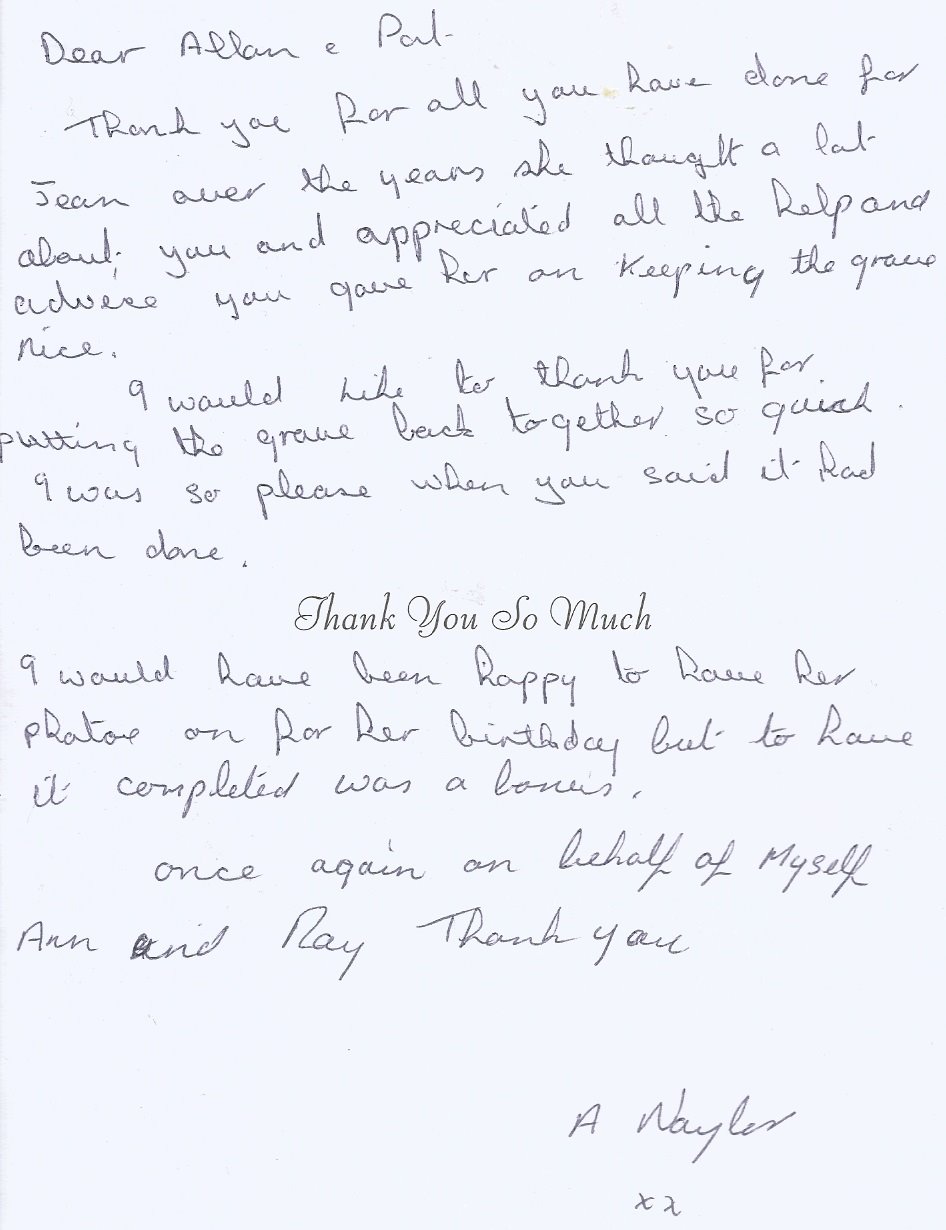 Dear Allan & Pat
Thank you for all you have done for
Jean over the years she thought a lot
about you and appreciated all the help and
advice you gave her on keeping the grave
nice.
I would like to thank you for
putting the grave back together so quick.
I was so please when you said it had
been done.
Thank You So Much
I would have been happy to have her
photoe on for her birthday but to have
it completed was a bonus.
once again on behalf of Myself
Ann and Ray Thank you
A Naylor
xx